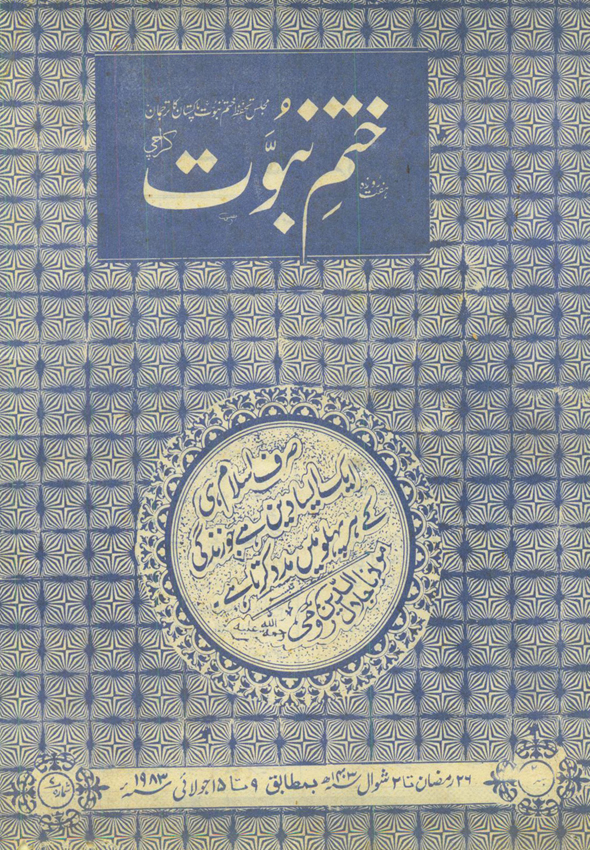 مجلس تحفظ ختم نبوت پاکستان کا ترجمان
ہفت روزہ
ختمِ نبوَّت
کراچی
صرف اسلام ہی
ایک ایسا دین ہے جو زندگی
کے ہر پہلو میں مدد کرتا ہے
مولانا جلال الدین رومی
رحمۃ اللہ علیہ
۲۶ رمضان تا ۲ شوال ۱۴۰۳ھ بمطابق ۹ تا ۱۵ جولائی ۱۹۸۳ء
شمارہ